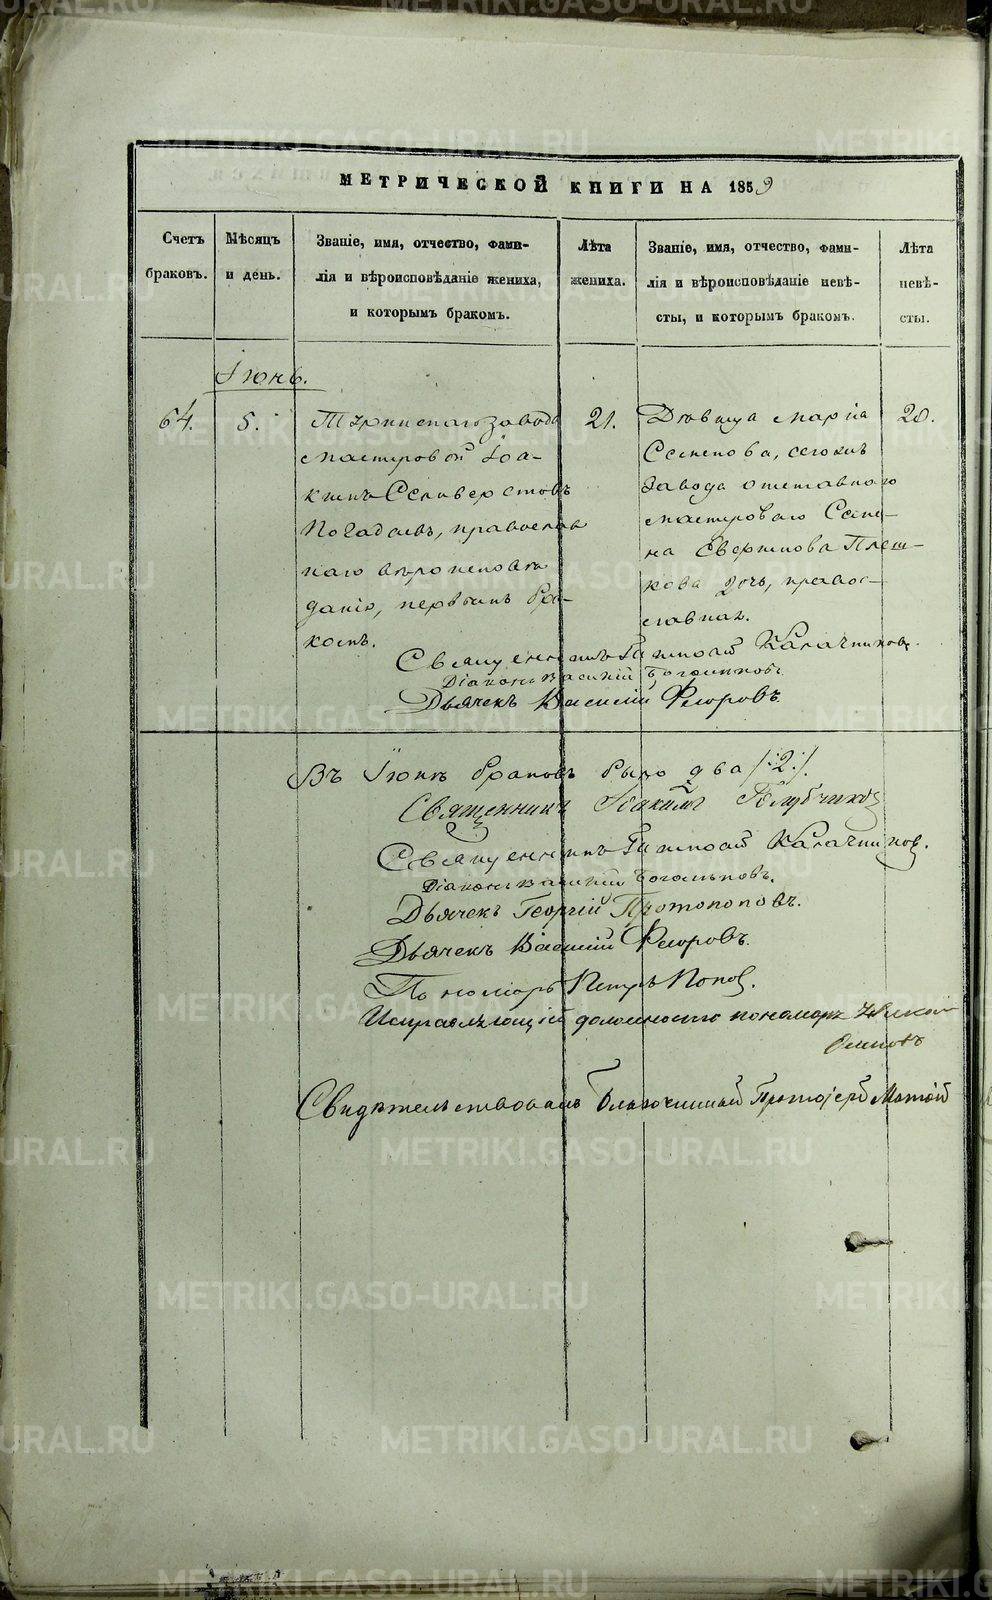 МЕТРИЧЕСКОЙ КНИГИ НА 1859
Счетъ браковъ.
Мѣсяцъ и день.
Званіе, имя, отчество, фами-
лія и вѣроисповѣданіе жениха,
и которымъ бракомъ.
Лѣта жениха.
Званіе, имя, отчество, фами-
лія и вѣроисповѣданіе невѣ-
сты, и которымъ бракомъ.
Лѣта невѣ-
сты.
Іюнь.
64.
5.
завода
мастеровой Іоа-
кимъ Селиверстовъ
Погадаевъ, православ
наго вѣроисповѣ
данія, первымъ бра-
комъ.
21.
Дѣвица Марія
Семенова, сегожъ
завода отставнаго
мастероваго Семе-
на
дочь, правос-
лавная.
20.
Священникъ Калачниковъ.
Діаконъ Василій
Дьячекъ Василій Флоровъ.
Въ Іюнѣ браковъ было два /:2:/.
Священникъ Іоакимъ Голубчиковъ
Священникъ Калачниковъ.
Діаконъ Василій
Дьячекъ Георгій Протопоповъ.
Дьячекъ Василій Флоровъ.
Пономарь Петръ Поповъ.
Исправляющій должность пономаря
Свидѣтельствовалъ Благочинный Протоіерей
METRIKI.GASO-URAL.RU